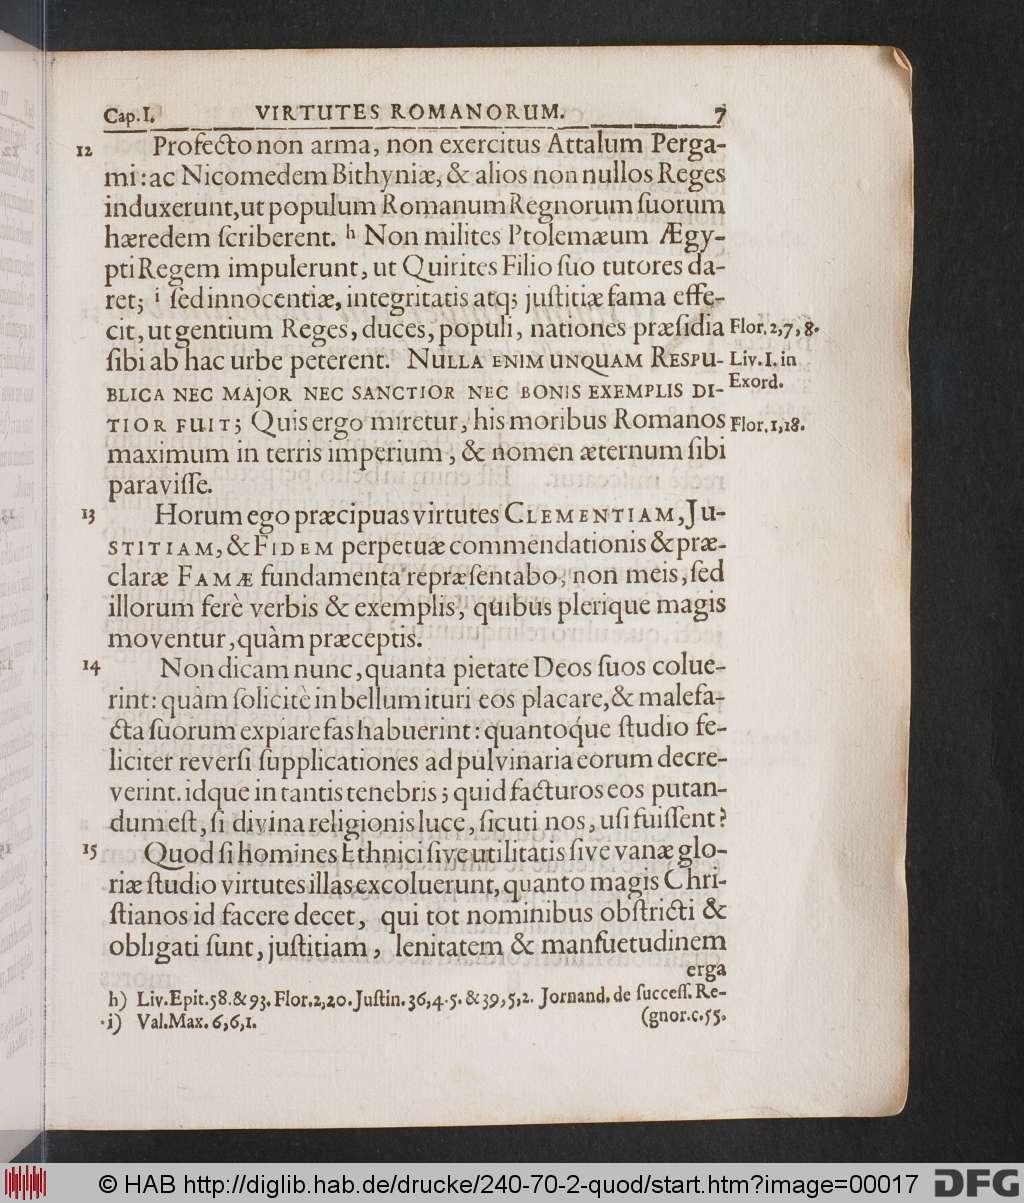 Cap. I. VIRTUTES ROMANORUM. 7
12 Profecto non arma, non exercitus Attalum Perga-
mi: ac Nicomedem Bithyniæ, & alios non nullos Reges
induxerunt, ut populum Romanum Regnorum ſuorum
hæredem ſcriberent. h Non milites Ptolemæum Ægy-
pti Regem impulerunt, ut Quirites Filio ſuo tutores da-
ret; i ſed innocentiæ, integritatis atq; juſtitiæ fama effe-
cit, ut gentium Reges, duces, populi, nationes præſidia Flor. 2, 7, 8.
ſibi ab hac urbe peterent. NULLA ENIM UNQUAM RESPU- Liv. I. in
BLICA NEC MAJOR NEC SANCTIOR NEC BONIS EXEMPLIS DI- Exord.
TIOR FUIT; Quis ergo miretur, his moribus Romanos Flor. 1, 18.
maximum in terris imperium, & nomen æternum ſibi
paraviſſe.
13 Horum ego præcipuas virtutes CLEMENTIAM, JU-
STITIAM, & FIDEM perpetuæ commendationis & præ-
claræ FAMÆ fundamenta repræſentabo, non meis, ſed
illorum ferè verbis & exemplis, quibus plerique magis
moventur, quàm præceptis.
14 Non dicam nunc, quanta pietate Deos ſuos colue-
rint: quàm ſolicitè in bellum ituri eos placare, & malefa-
cta ſuorum expiare fas habuerint: quantoq́ue ſtudio fe-
liciter reverſi ſupplicationes ad pulvinaria eorum decre-
verint. idque in tantis tenebris; quid facturos eos putan-
dum eſt, ſi divina religionis luce, ſicuti nos, uſi fuiſſent?
15 Quod ſi homines Ethnici ſive utilitatis ſive vanæ glo-
riæ ſtudio virtutes illas excoluerunt, quanto magis Chri-
ſtianos id facere decet, qui tot nominibus obſtricti &
obligati ſunt, juſtitiam, lenitatem & manſuetudinem
erga
h) Liv. Epit. 58. & 93. Flor. 2, 20. Juſtin. 36, 4. 5. & 39, 5, 2. Jornand. de ſucceſſ. Re-
i) Val. Max. 6, 6, 1. (gnor. c. 55.
© HAB http://diglib.hab.de/drucke/240-70-2-quod/start.htm?image=00017 DFG